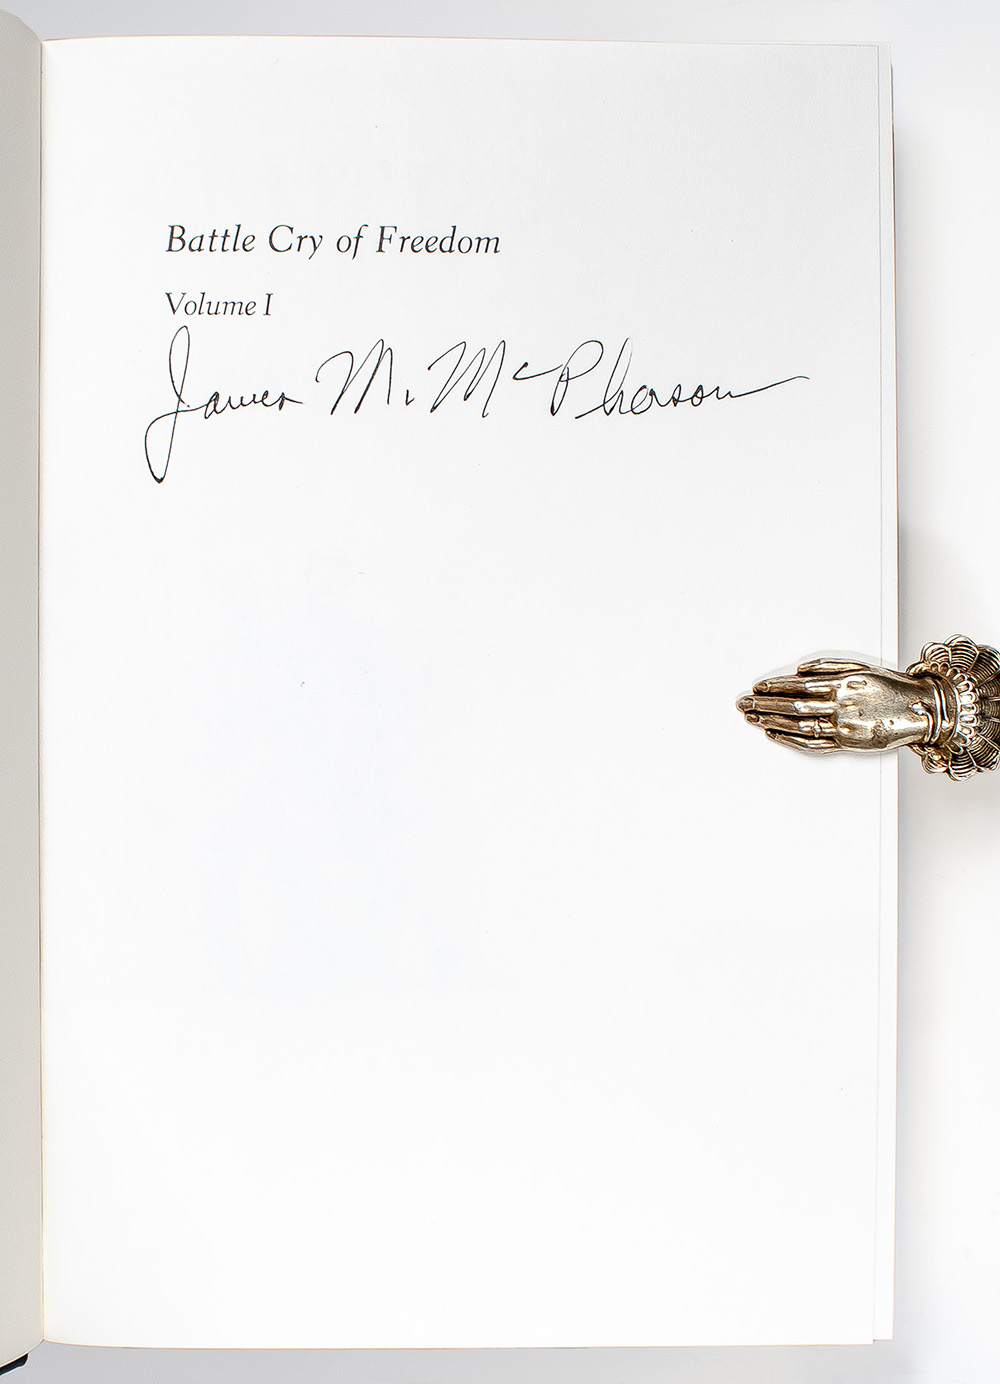 Battle Cry of Freedom
Volume I
James M. McPherson